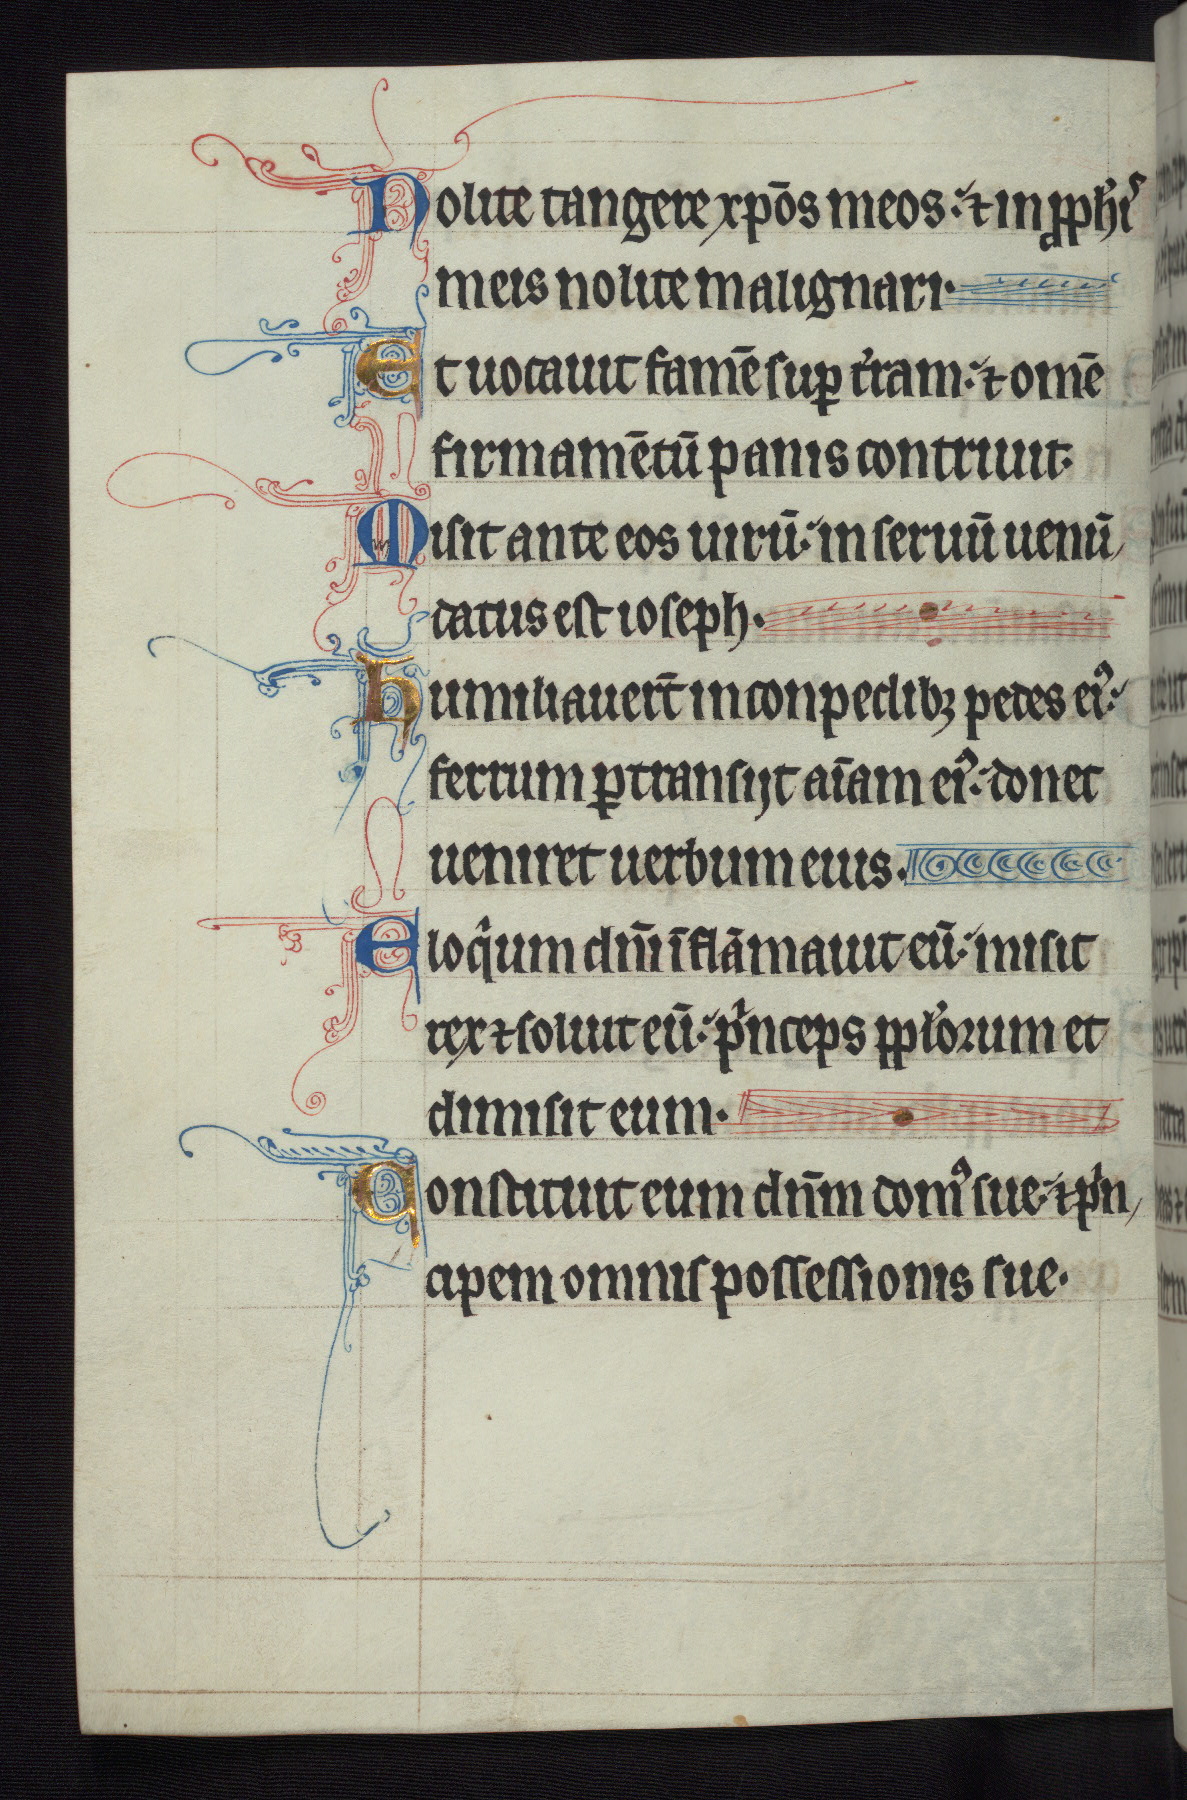 Nolite tangere xp̄os meos: ⁊ in ꝓph̓is
meis nolite malignari.
Et uocauit famē suꝑ t̓ram: ⁊ omē
firmamētū panis contriuit.
Misit ante eos uirū: in seruū uenū
datus est ioseph.
Humiliauer̄t in conpedibꝫ pedes ei᾽:
ferrum ꝑtransiit aīam ei᾽: donec
ueniret uerbum eius.
Eloq̓um dn̄i īflāmauit eū: misit
rex ⁊ soluit eū: p̓nceps ppl̓orum et
dimisit eum.
Constituit eum dn̄m domꝰ sue: ⁊ p̓n
cipem omnis possessionis sue.